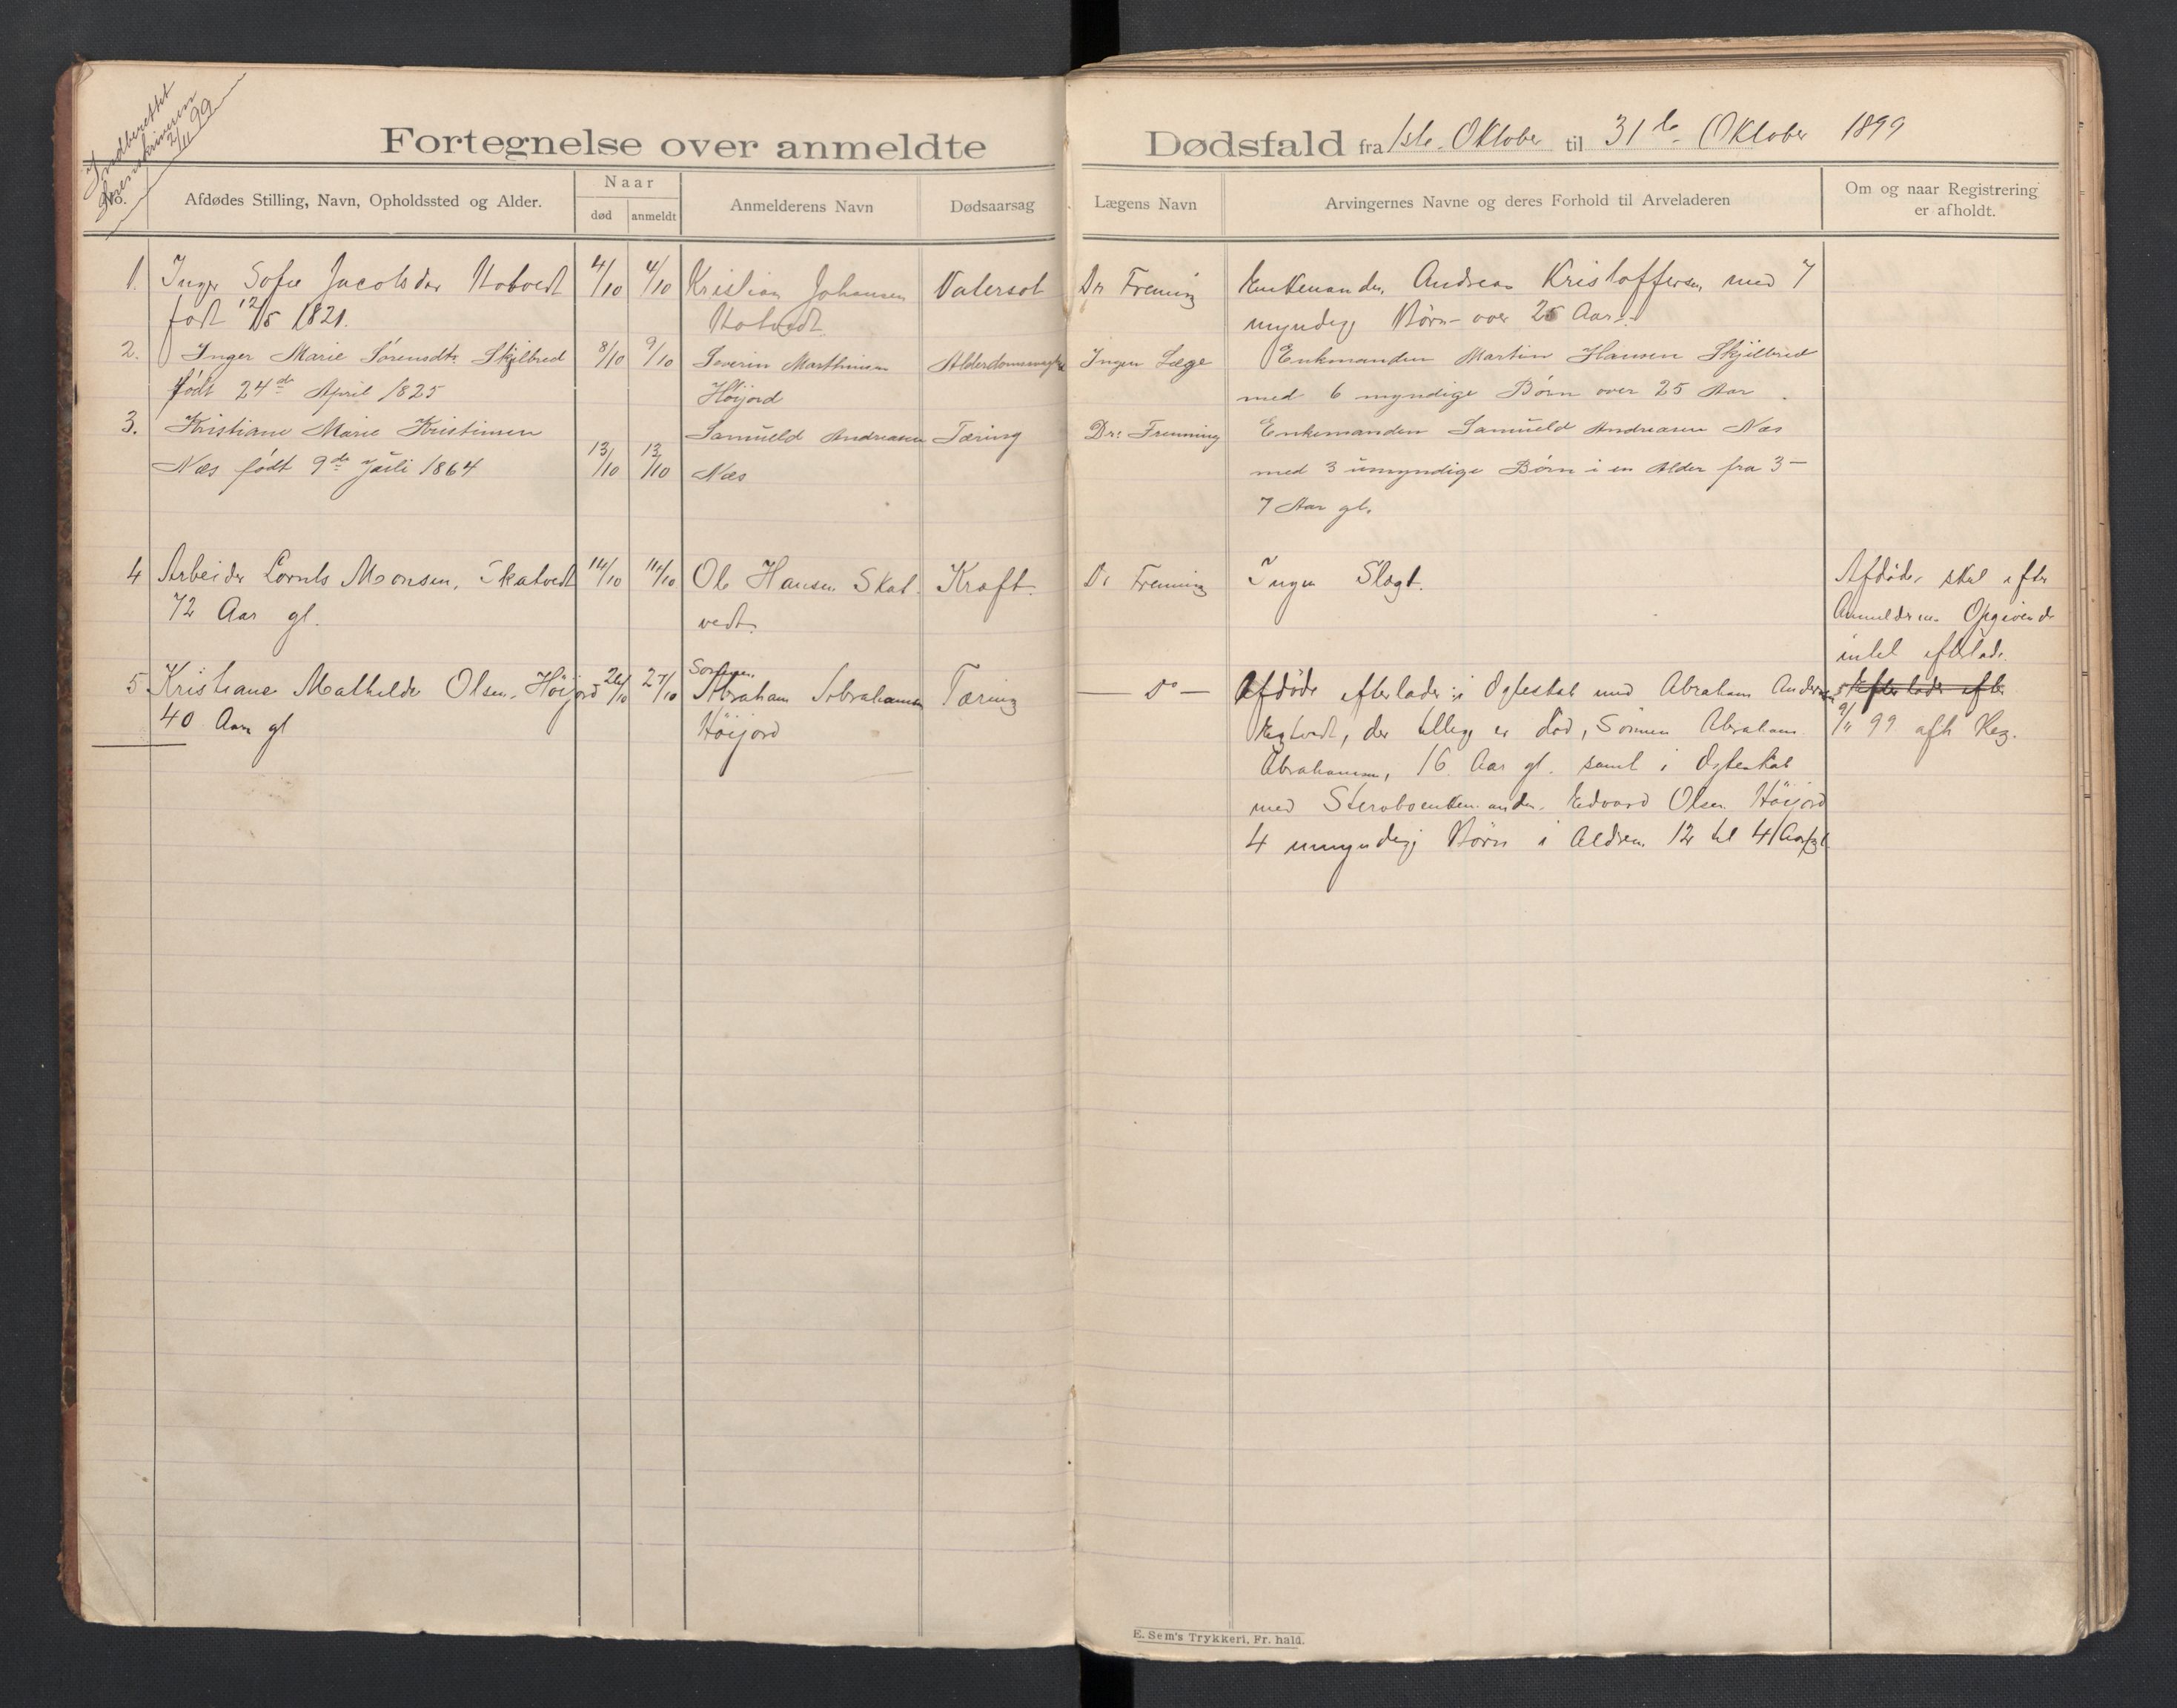 Indberettet
Sorenskriveren
2/11 99
Fortegnelse over anmeldte
Dødsfald fra 1ste Oktober til 31te Oktober 1899
No.
Afdødes Stilling, Navn, Opholdssted og Alder.
Naar
død
anmeldt
Anmelderens Navn
Dødsaarsag
Lægens Navn
Arvingernes Navne og deres Forhold til Arveladeren
Om og naar Registrering
er afholdt.
1. Inger Sofie Jacobsdtr 4/10 4/10 Kristian Johansen Vatersot Dr Frenning Enkemanden Andreas Kristoffersen, med 7
født 12/5 1821.
myndige Børn over 25 Aar.
2. Inger Marie Sørensdtr Skjelbred 8/10 9/10 Severin Marthinsen Ingen Læge Enkmanden Martin Hansen Skjelbred
født 24de April 1825 Høijord med 6 myndige Børn over 25 Aar.
3. Kristiane Marie Kristinsen Samueld Andreasen Tæring Dr: Frenning Enkemanden Samueld Andreasen Næs
Næs født 9de Juli 1864 13/10 13/10 Næs med 3 umyndige Børn i en Alder fra 3 –
7 Aar gl.
4 Arbeider Lornts Monsen, Skatvedt 14/10 14/10 Ole Hansen Skat- Kræft. Dr Frenning Ingen Slægt. Afdøde skal efter
72 Aar gl. vedt. Anmelderens Opgivende
intet efterlade.
5 Kristiane Mathilde Olsen, Høijord 26/10 27/10 Sønnen Abraham Abrahamsen Tæring — Do — Afdøde efterlader: i Ægteskab med Abraham Andersen
40 Aar gl Høijord der tillige er død, Sønnen Abraham 9/11 99 afh Reg.
Abrahamsen, 16 Aar gl. samt i Ægteskab
med Stervboenkemanden Edvard Olsen Høijord
4 umyndige Børn i Alderen 12 til 4 Aar gl.
E. Sem's Trykkeri, Fr. hald.